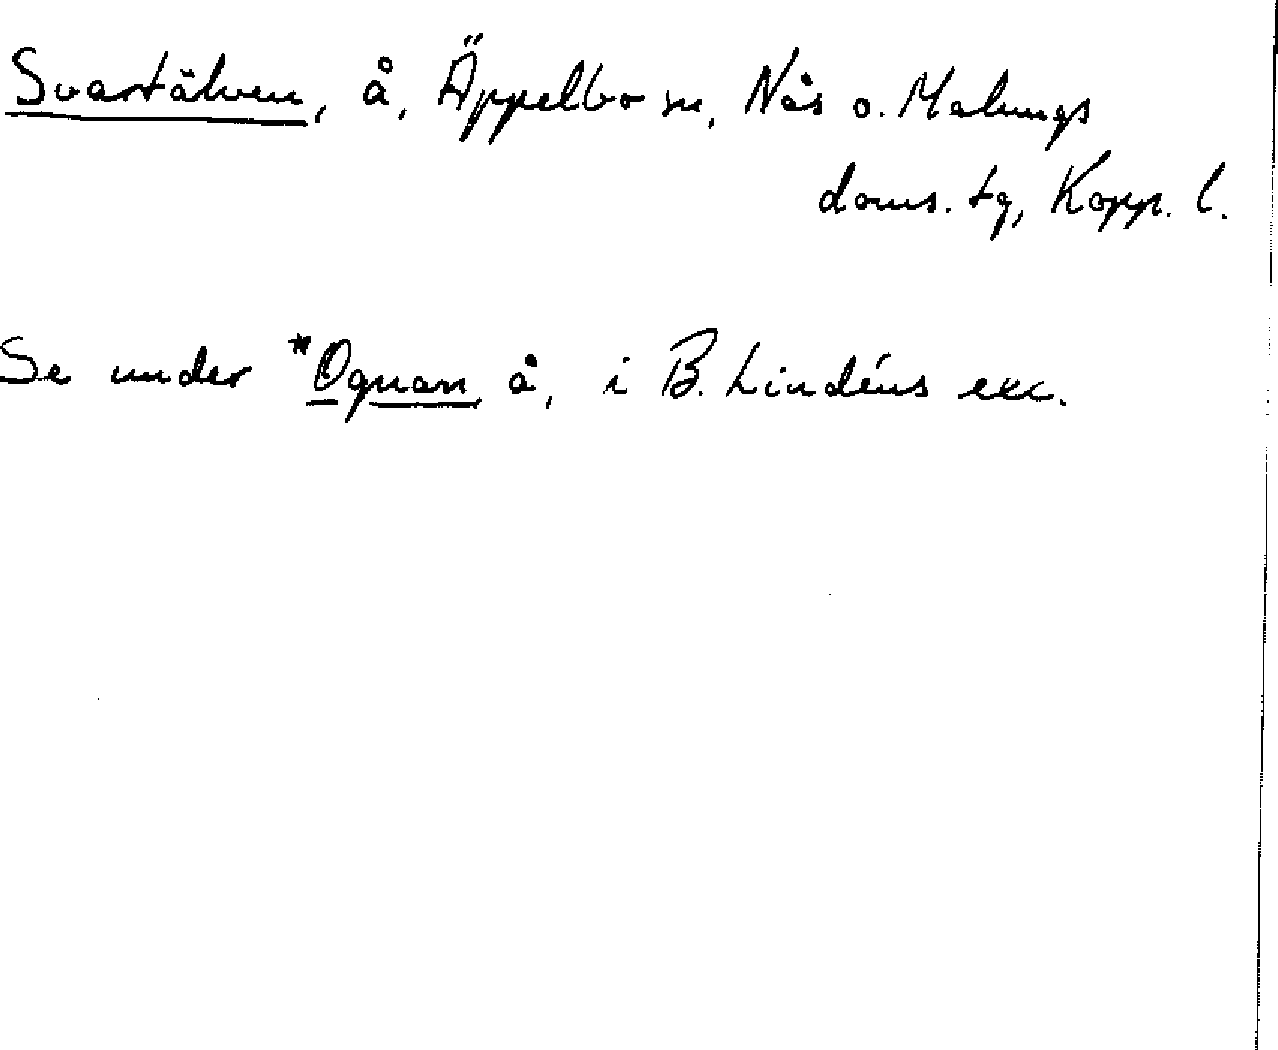 Svartälven, å, Äppelbo sn, Nås o. Malungs
doms. tg, Kopp. l.
Se under *Oguan å, i B. Lindéns exc.